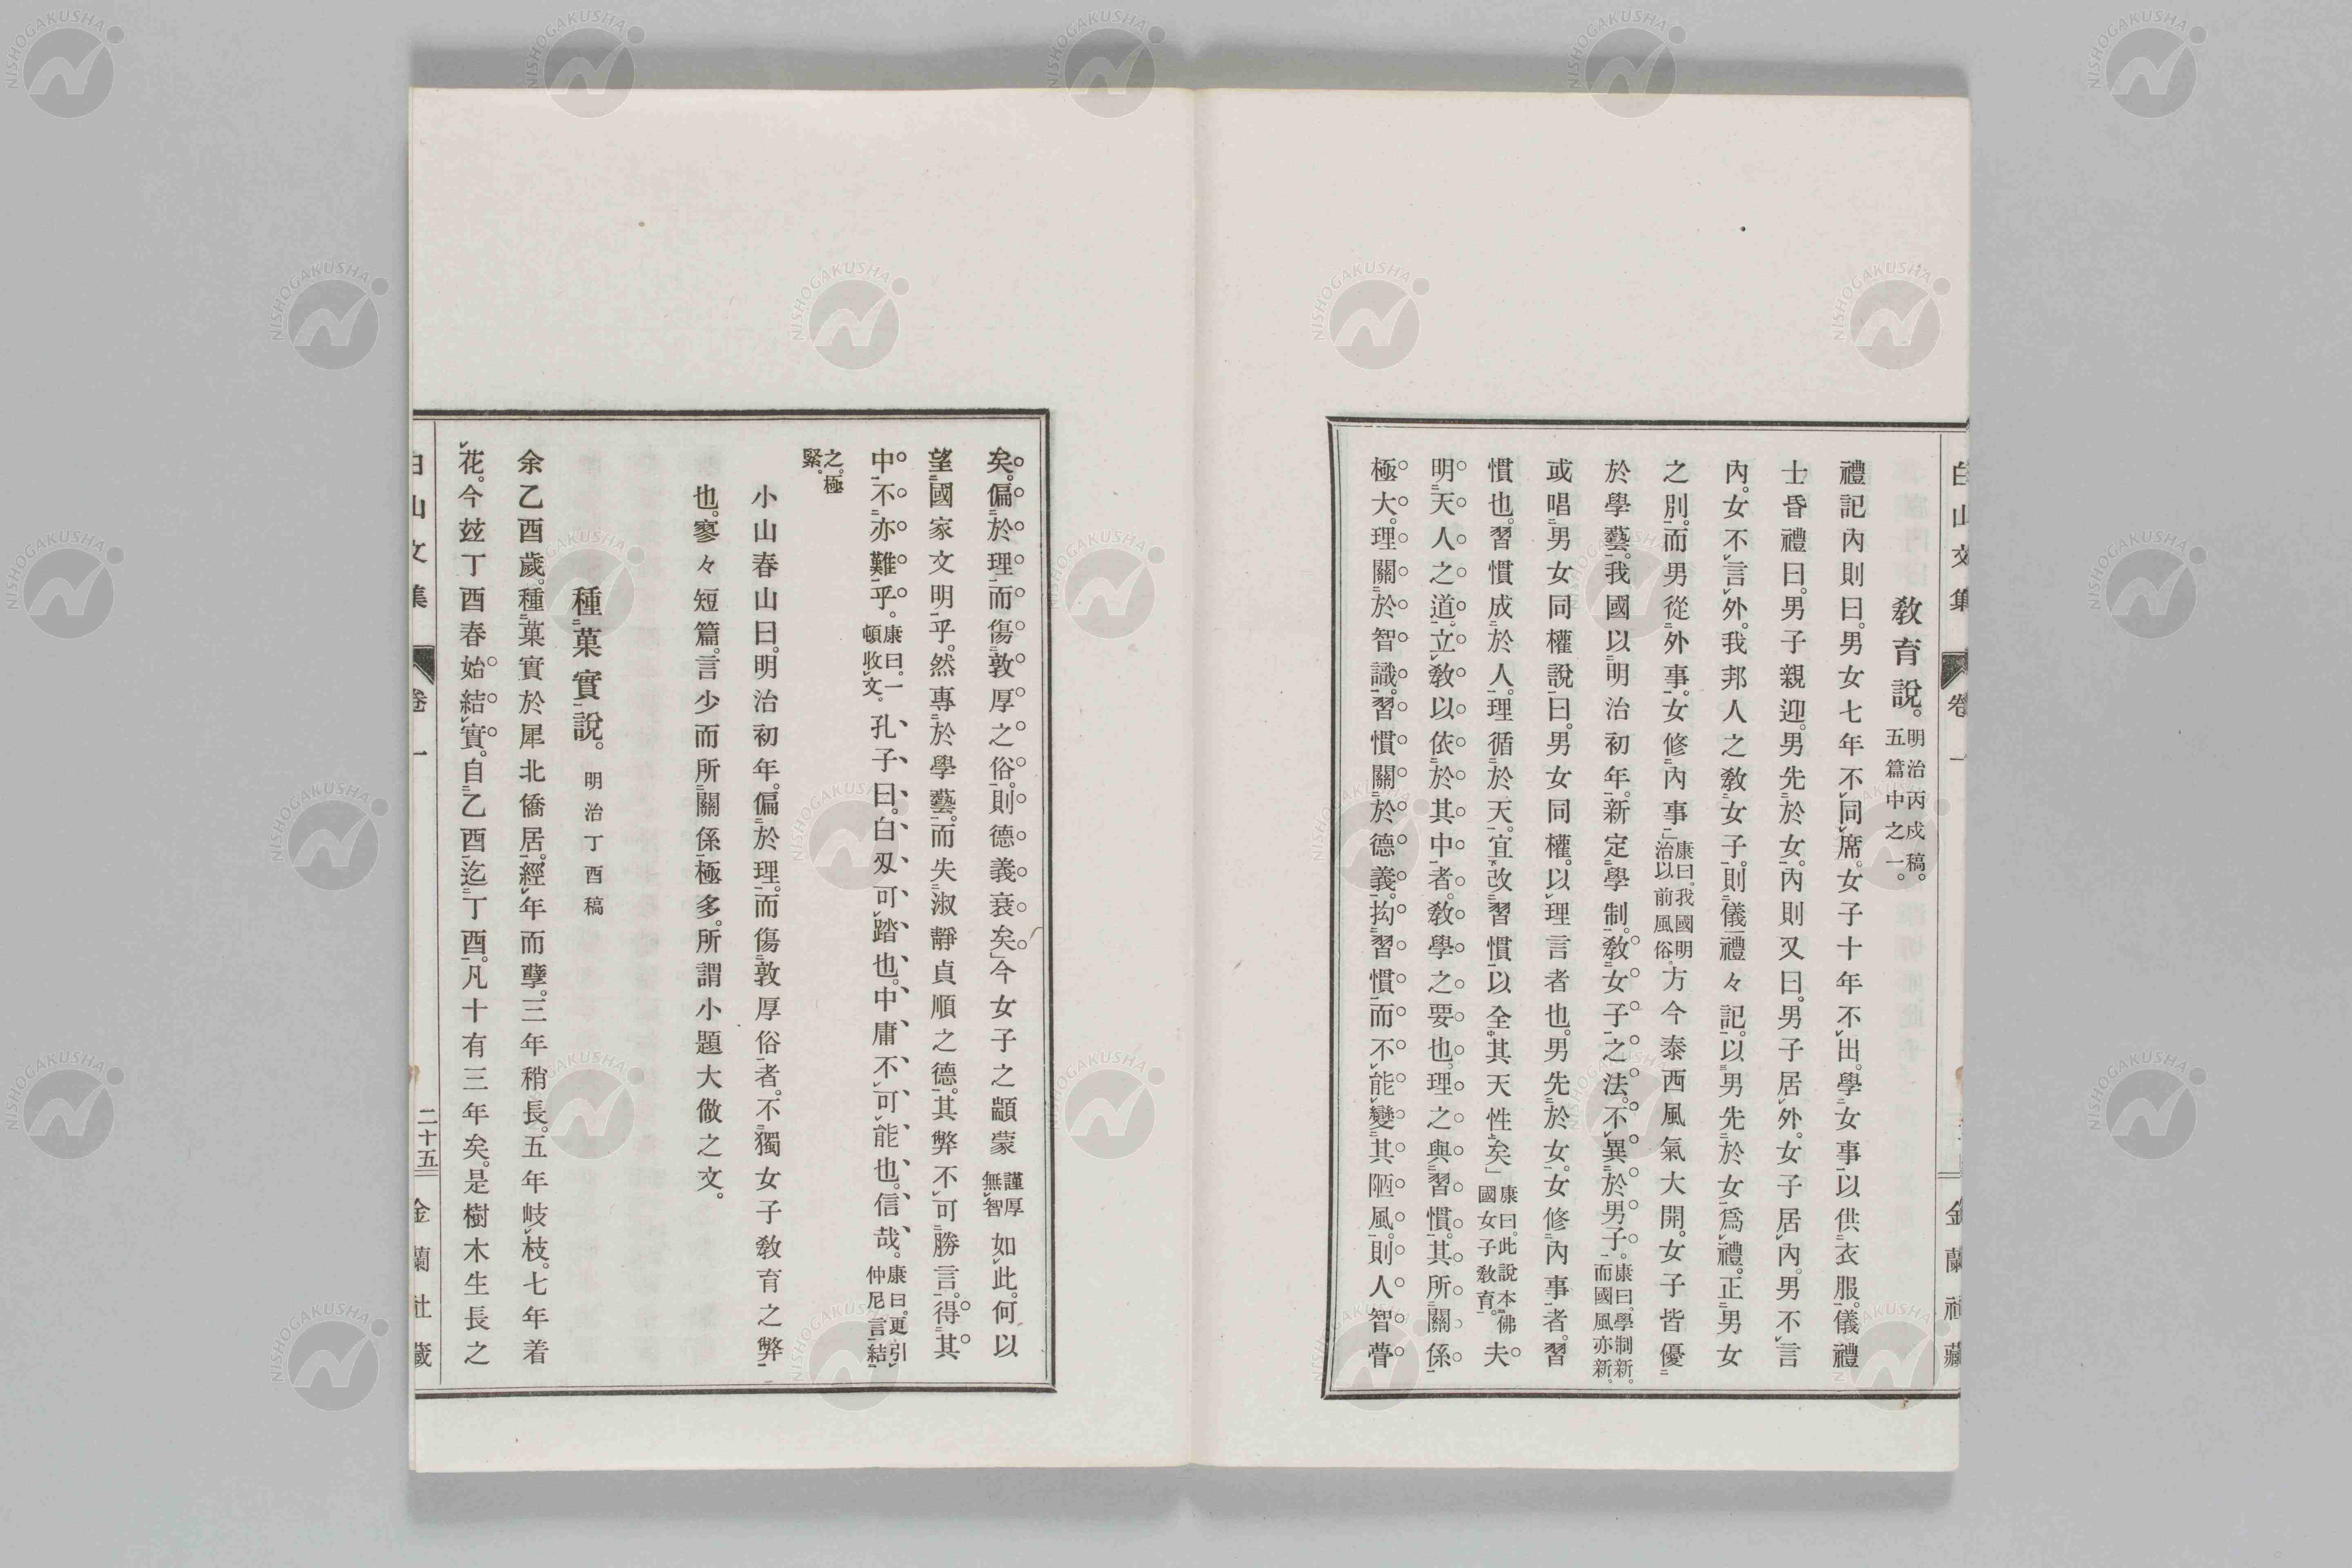 教育說。明治丙戌稿。五篇中之一。
禮記內則曰。男女七年不同席。女子十年不出。學女事以供衣服。儀禮
士昏禮曰。男子親迎。男先於女。內則又曰。男子居外。女子居內。男不言
內。女不言外。我邦人之敎女子。則儀禮々記。以男先於女爲禮。正男女
之別。而男從外事。女修內事」康曰。我國明治以前風俗。方今泰西風氣大開。女子皆優
於學藝。我國以明治初年。新定學制。敎女子之法。不異於男子。康曰。學制新。而國風亦新。
或唱男女同權說曰。男女同權。以理言者也。男先於女。女修內事者。習
慣也。習慣成於人。理循於天。宜改習慣以全其天性矣」康曰。此說本佛國女子敎育。夫
明天人之道。立敎以依於其中者。敎學之要也。理之與習慣。其所關係
極大。理關於智識。習慣關於德義。拘習慣而不能變其陋風。則人智瞢
矣。偏於理而傷敦厚之俗。則德義衰矣」今女子之顓蒙謹厚無智如此。何以
望國家文明乎。然專於學藝。而失淑靜貞順之德。其弊不可勝言。得其
中。不亦難乎。康曰。一頓收文。孔子曰。白刃可踏也。中庸不可能也。信哉。康曰。更引仲尼言結
之。極緊。
小山春山曰。明治初年。偏於理。而傷敦厚俗者。不獨女子敎育之弊
也。寥々短篇。言少而所關係極多。所謂小題大做之文。
種菓實說。明治丁酉稿
余乙酉歲。種菓實於犀北僑居。經年而孽。三年稍長。五年岐枝。七年着
花。今玆丁酉春始結實。自乙酉迄丁酉。凡十有三年矣。是樹木生長之
白山文集 卷一 二十五 金蘭社藏